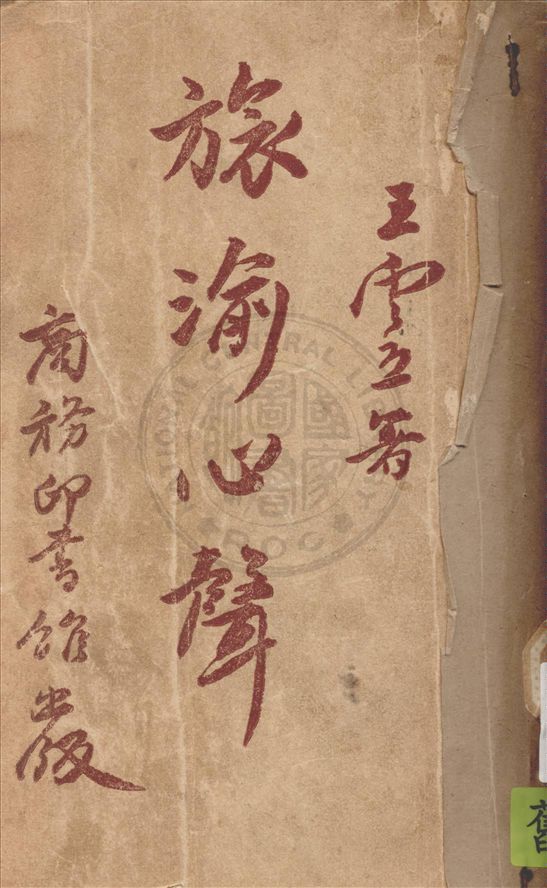 王雲五著
旅渝心聲
商務印書館出版
NATIONAL CENTRAL LIBRARY
國家圖書館
R.O.C
舊